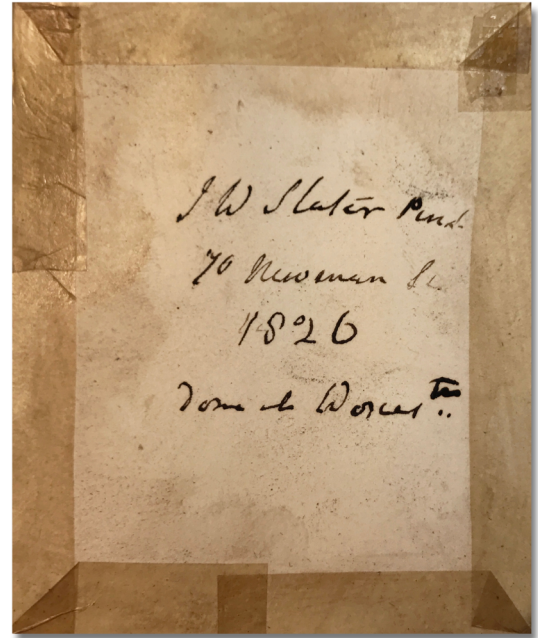 J W Slater Pinx
70 Newman St
1826
Done at Worces ter